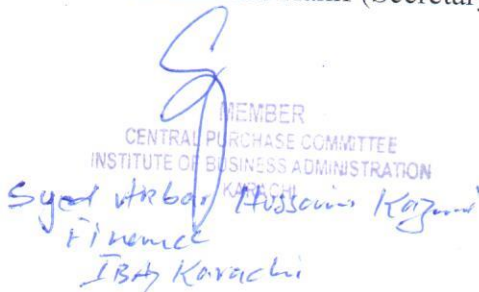 (Secretary
MEMBER
CENTRAL PURCHASE COMMITTEE
INSTITUTE OF BUSINESS ADMINISTRATION
KARACHI
Syed Akbar Hussain Kazmi
Finance
IBA, Karachi